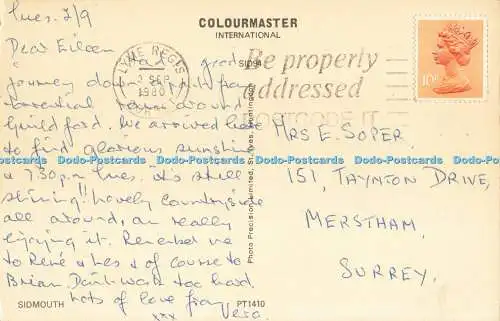 Tues. 2/9
COLOURMASTER
INTERNATIONAL
Dear Eileen
Had a good
journey down apart from
torrential rain around
Guildford. We arrived here
to find glorious sunshine
& 7.30 p.m. Tues. it's still
shining!! Lovely countryside
all around, am really
enjoying it. Remember me
to René & Les & of course to
Brian. Don't work too hard
Lots of love from
xxx Vera.
SIDMOUTH
PT1410
SID94
Photo Precision Limited, St. Ives, Huntingdon
LYME REGIS
2 SEP
1980
Be properly
addressed
POSTCODE IT
10P
MRS E. SOPER
151, TAYNTON DRIVE,
MERSTHAM,
SURREY.
Dodo-Postcards Dodo-Postcards Dodo-Postcards Dodo-Postcards Dodo-Postcards